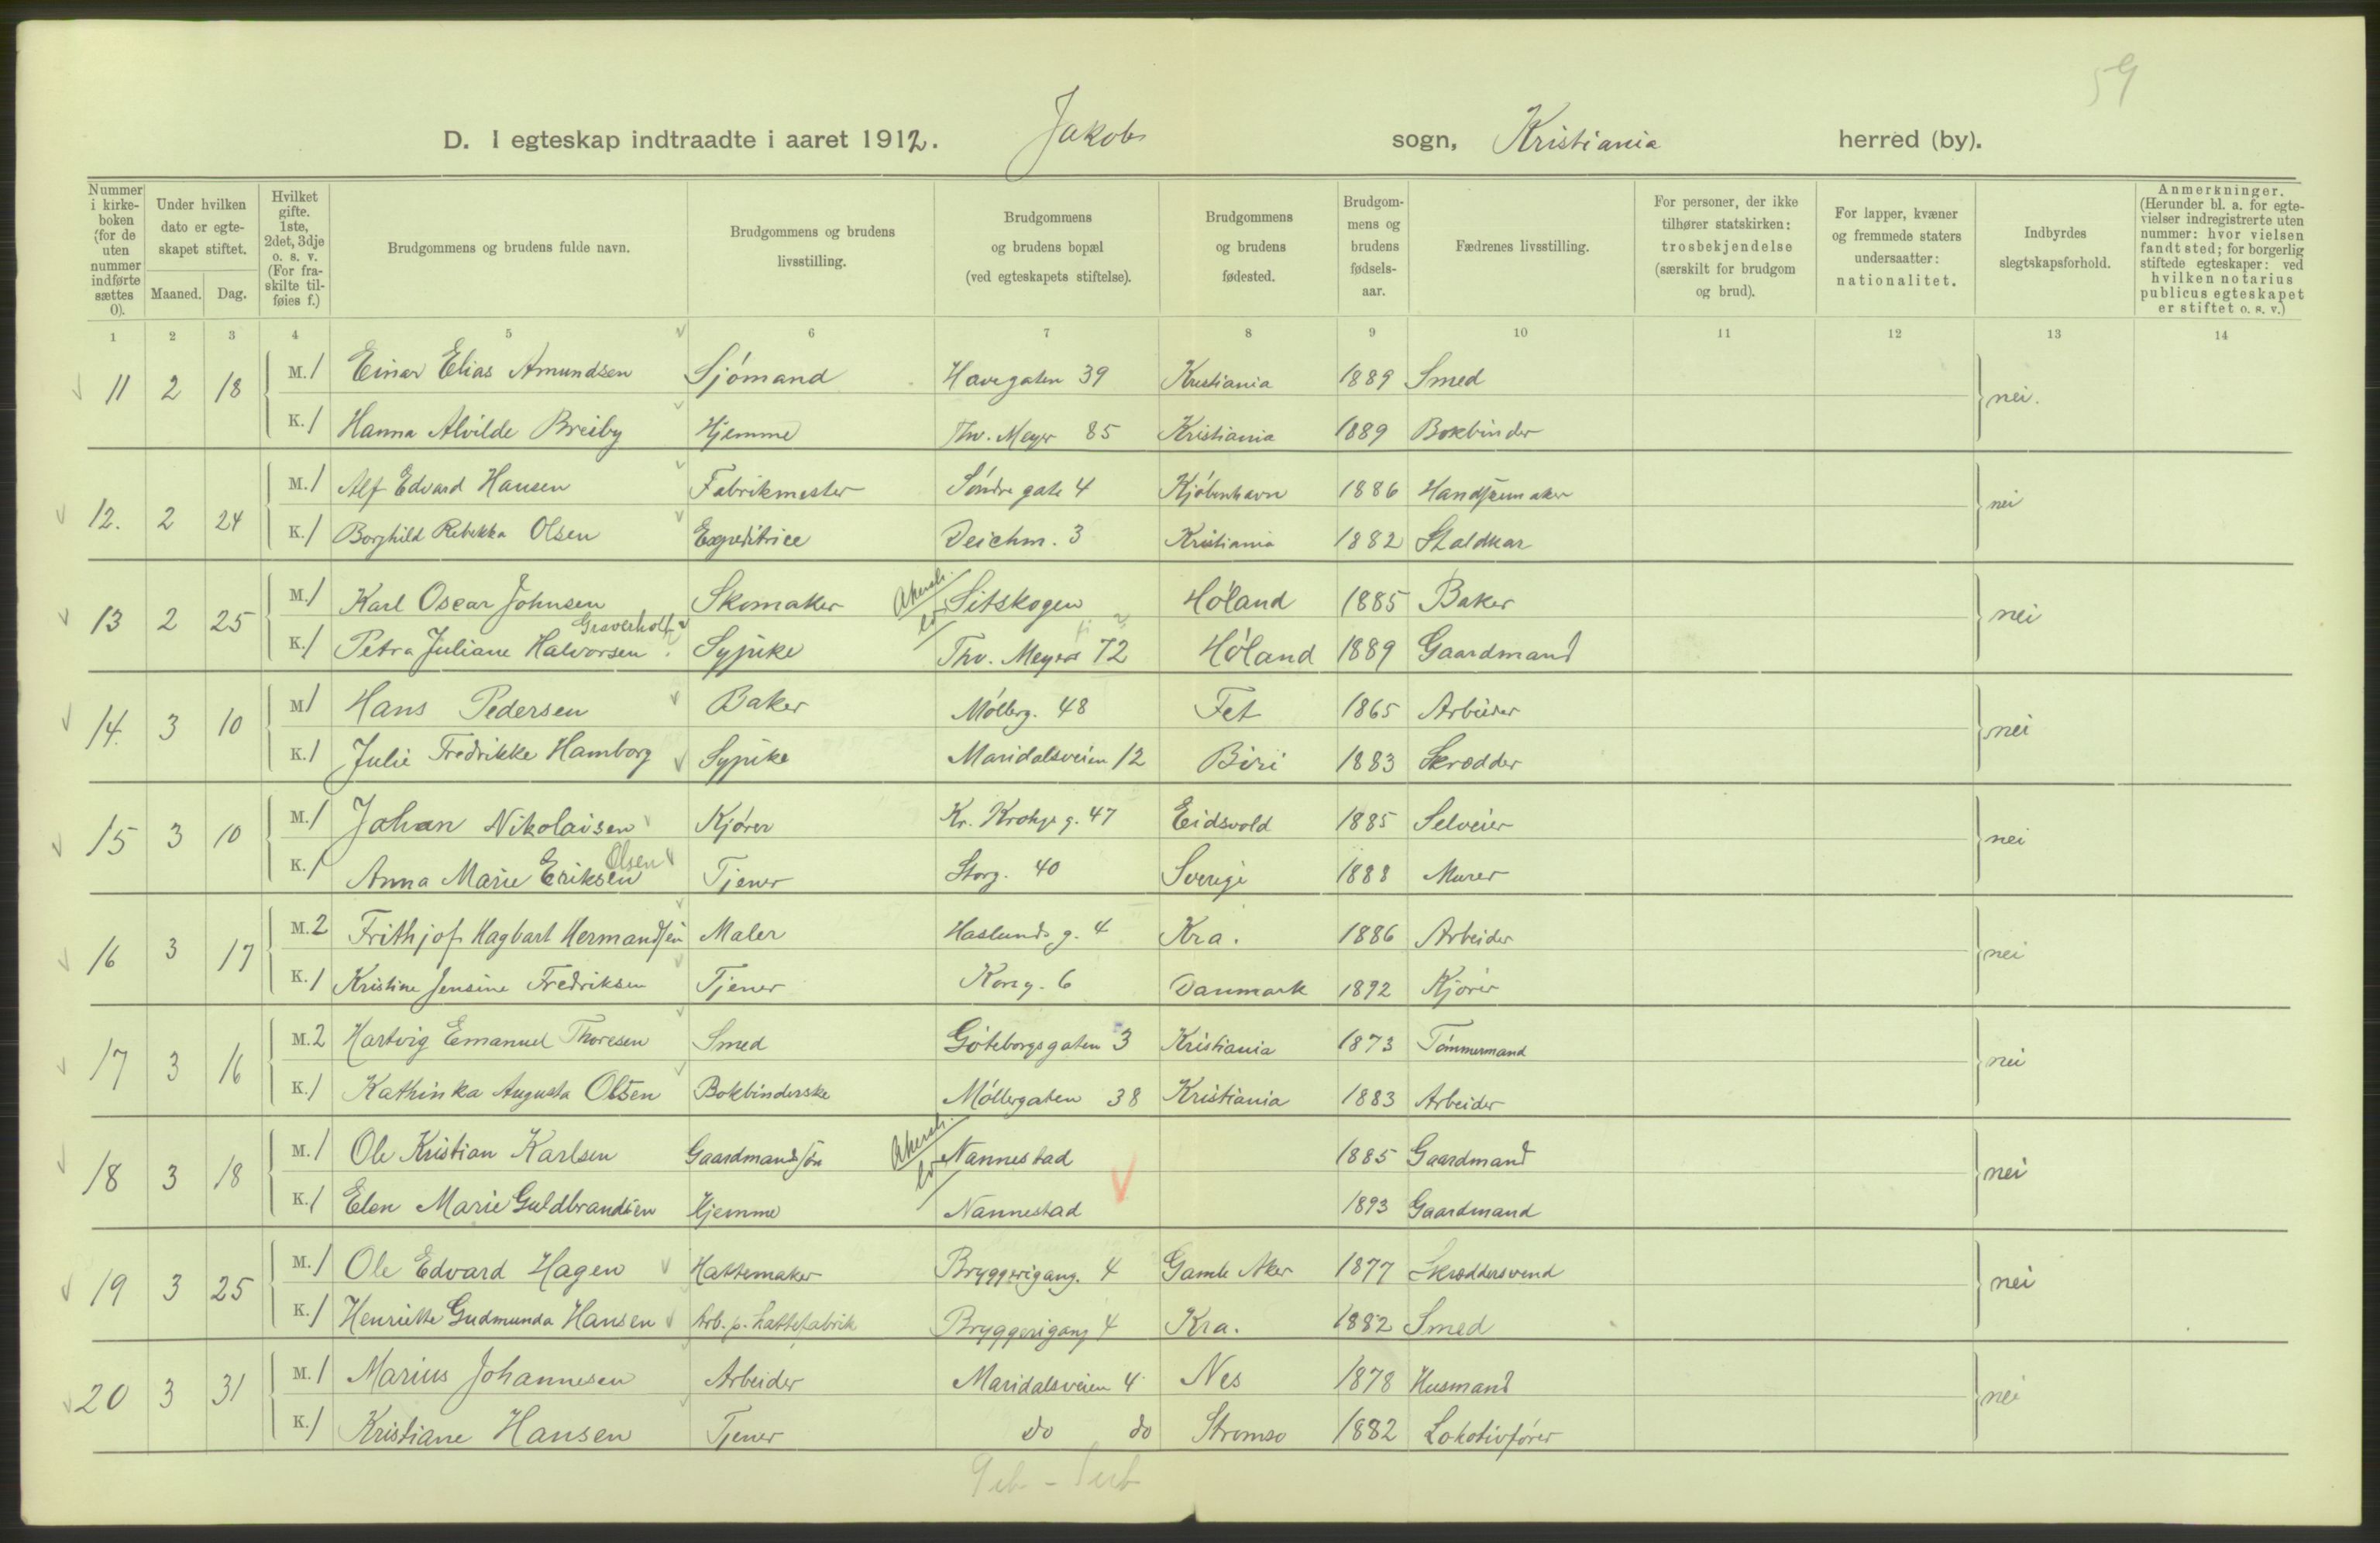 59
D. I egteskap indtraadte i aaret 1912. Jakobs sogn, Kristiania herred (by).
Nummer i kirkeboken (for de uten nummer indførte sættes 0).
Under hvilken dato er egteskapet stiftet.
Maaned. Dag.
Hvilket gifte. 1ste, 2det, 3dje o. s. v. (For fraskilte tilføies f.)
Brudgommens og brudens fulde navn.
Brudgommens og brudens livsstilling.
Brudgommens og brudens bopæl (ved egteskapets stiftelse).
Brudgommens og brudens fødested.
Brudgommens og brudens fødselsaar.
Fædrenes livsstilling.
For personer, der ikke tilhører statskirken: trosbekjendelse (særskilt for brudgom og brud).
For lapper, kvæner og fremmede staters undersaatter: nationalitet.
Indbyrdes slegtskapsforhold.
Anmerkninger. (Herunder bl. a. for egtevielser indregistrerte uten nummer: hvor vielsen fandt sted; for borgerlig stiftede egteskaper: ved hvilken notarius publicus egteskapet er stiftet o. s. v.)
1 2 3 4 5 6 7 8 9 10 11 12 13 14
11 2 18 M. 1 Einar Elias Amundsen Sjømand Havegaten 39 Kristiania 1889 Smed nei.
K. 1 Hanna Alvilde Breiby Hjemme Thv. Meyer 85 Kristiania 1889 Bokbinder
12. 2 24 M. 1 Alf Edvard Hansen Fabrikmester Søndre gate 4 Kjøbenhavn 1886 Handskemaker nei
K. 1 Borghild Rebekka Olsen Expeditrice Deichm. 3 Kristiania 1882 Staldkar
13 2 25 M. 1 Karl Oscar Johnsen Skomaker Akersh. Sitskogen Høland 1885 Baker nei
K. 1 Petra Juliane Halvorsen Graverholt Sypike Thv. Meyers 72 Høland 1889 Gaardmand
14. 3 10 M 1 Hans Pedersen Baker Møllerg. 48 Fet 1865 Arbeider nei
K. 1 Julie Fredrikke Hamborg Sypike Maridalsveien 12 Biri 1883 Skrædder
15 3 10 M. 1 Johan Nikolaisen Kjører Kr. Krohgs g. 47 Eidsvold 1885 Selveier nei
K. 1 Anna Marie Eriksen Olsen Tjener Storg. 40 Sverige 1888 Murer
16 3 17 M. 2 Frithjof Hagbart Hermandsen Maler Haslunds g. 4 Kra. 1886 Arbeider nei
K. 1 Kristine Jensine Fredriksen Tjener Kong. 6 Danmark 1892 Kjører
17 3 16 M. 2 Hartvig Emanuel Thoresen Smed Gøteborgsgaten 3 Kristiania 1873 Tømmermand nei
K. 1 Kathinka Augusta Olsen Bokbinderske Møllergaten 38 Kristiania 1883 Arbeider
18 3 18 M. 1 Ole Kristian Karlsen Gaardmandssøn Akersh. Nannestad 1885 Gaardmand nei
K. 1 Elen Marie Guldbrandsen Hjemme Nannestad 1893 Gaardmand
19 3 25 M. 1 Ole Edvard Hagen Hattemaker Bryggerigang. 4 Gamle Aker 1877 Skræddersvend nei
K. 1 Henriette Gudmunda Hansen Arb. p. hattefabrik Bryggerigang 4 Kra. 1882 Smed
20 3 31 M. 1 Marius Johannesen Arbeider Maridalsveien 4 Nes 1878 Husmand nei
K. 1 Kristiane Hansen Tjener do do Strømsø 1882 Lokotivfører